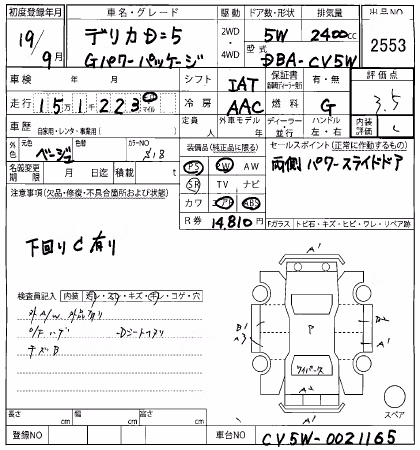 初度登録年月 車名・グレード 駆動 ドア数・形状 排気量 出品NO
19/9月 デリカD:5 2WD・4WD 5W 2400cc 2553
Gパワーパッケージ 型式 DBA-CV5W
車検 年 月 シフト IAT 保証書 有・無 評価点
走行 151,223 km マイル 冷房 AAC 燃料 G 3.5
車歴 自家用・レンタ・事業用( ) 定員 人 外車モデル 年 ディーラー・並行 ハンドル 左・右 内装評価 C
外色 元色 ベージュ 色替 カラーNO S18 装備品(純正品に限る) セールスポイント(正常に作動するもの)
名義変更期限 月 日迄 積載 t PS PW AW 両側パワースライドドア
注意事項(欠品・修復・不具合箇所および状態) SR TV ナビ
カワ エアB ABS
R券 14,810円
Fガラス トビ石・キズ・ヒビ・ワレ・リペア跡
下回りC有り
検査員記入 内装
キズ・コゲ・穴
外A/W 外品有り
キズB
A1
B1
A3
P
A1
ワイパーキズ
A2
A1
スペア
長さ cm 幅 cm 高さ cm
登録NO 車台NO CV5W-0021165